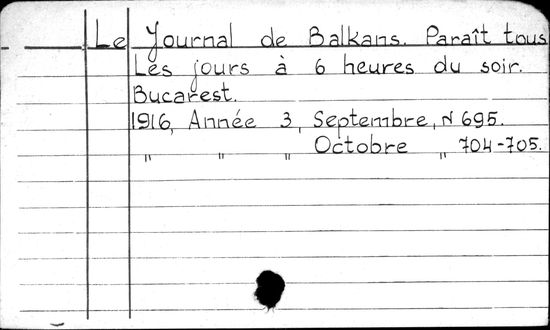 Le Journal de Balkans. Paraît tous
Les jours à 6 heures du soir.
Bucarest.
1916, Année 3, Septembre, N 695.
" " " Octobre " 704-705.